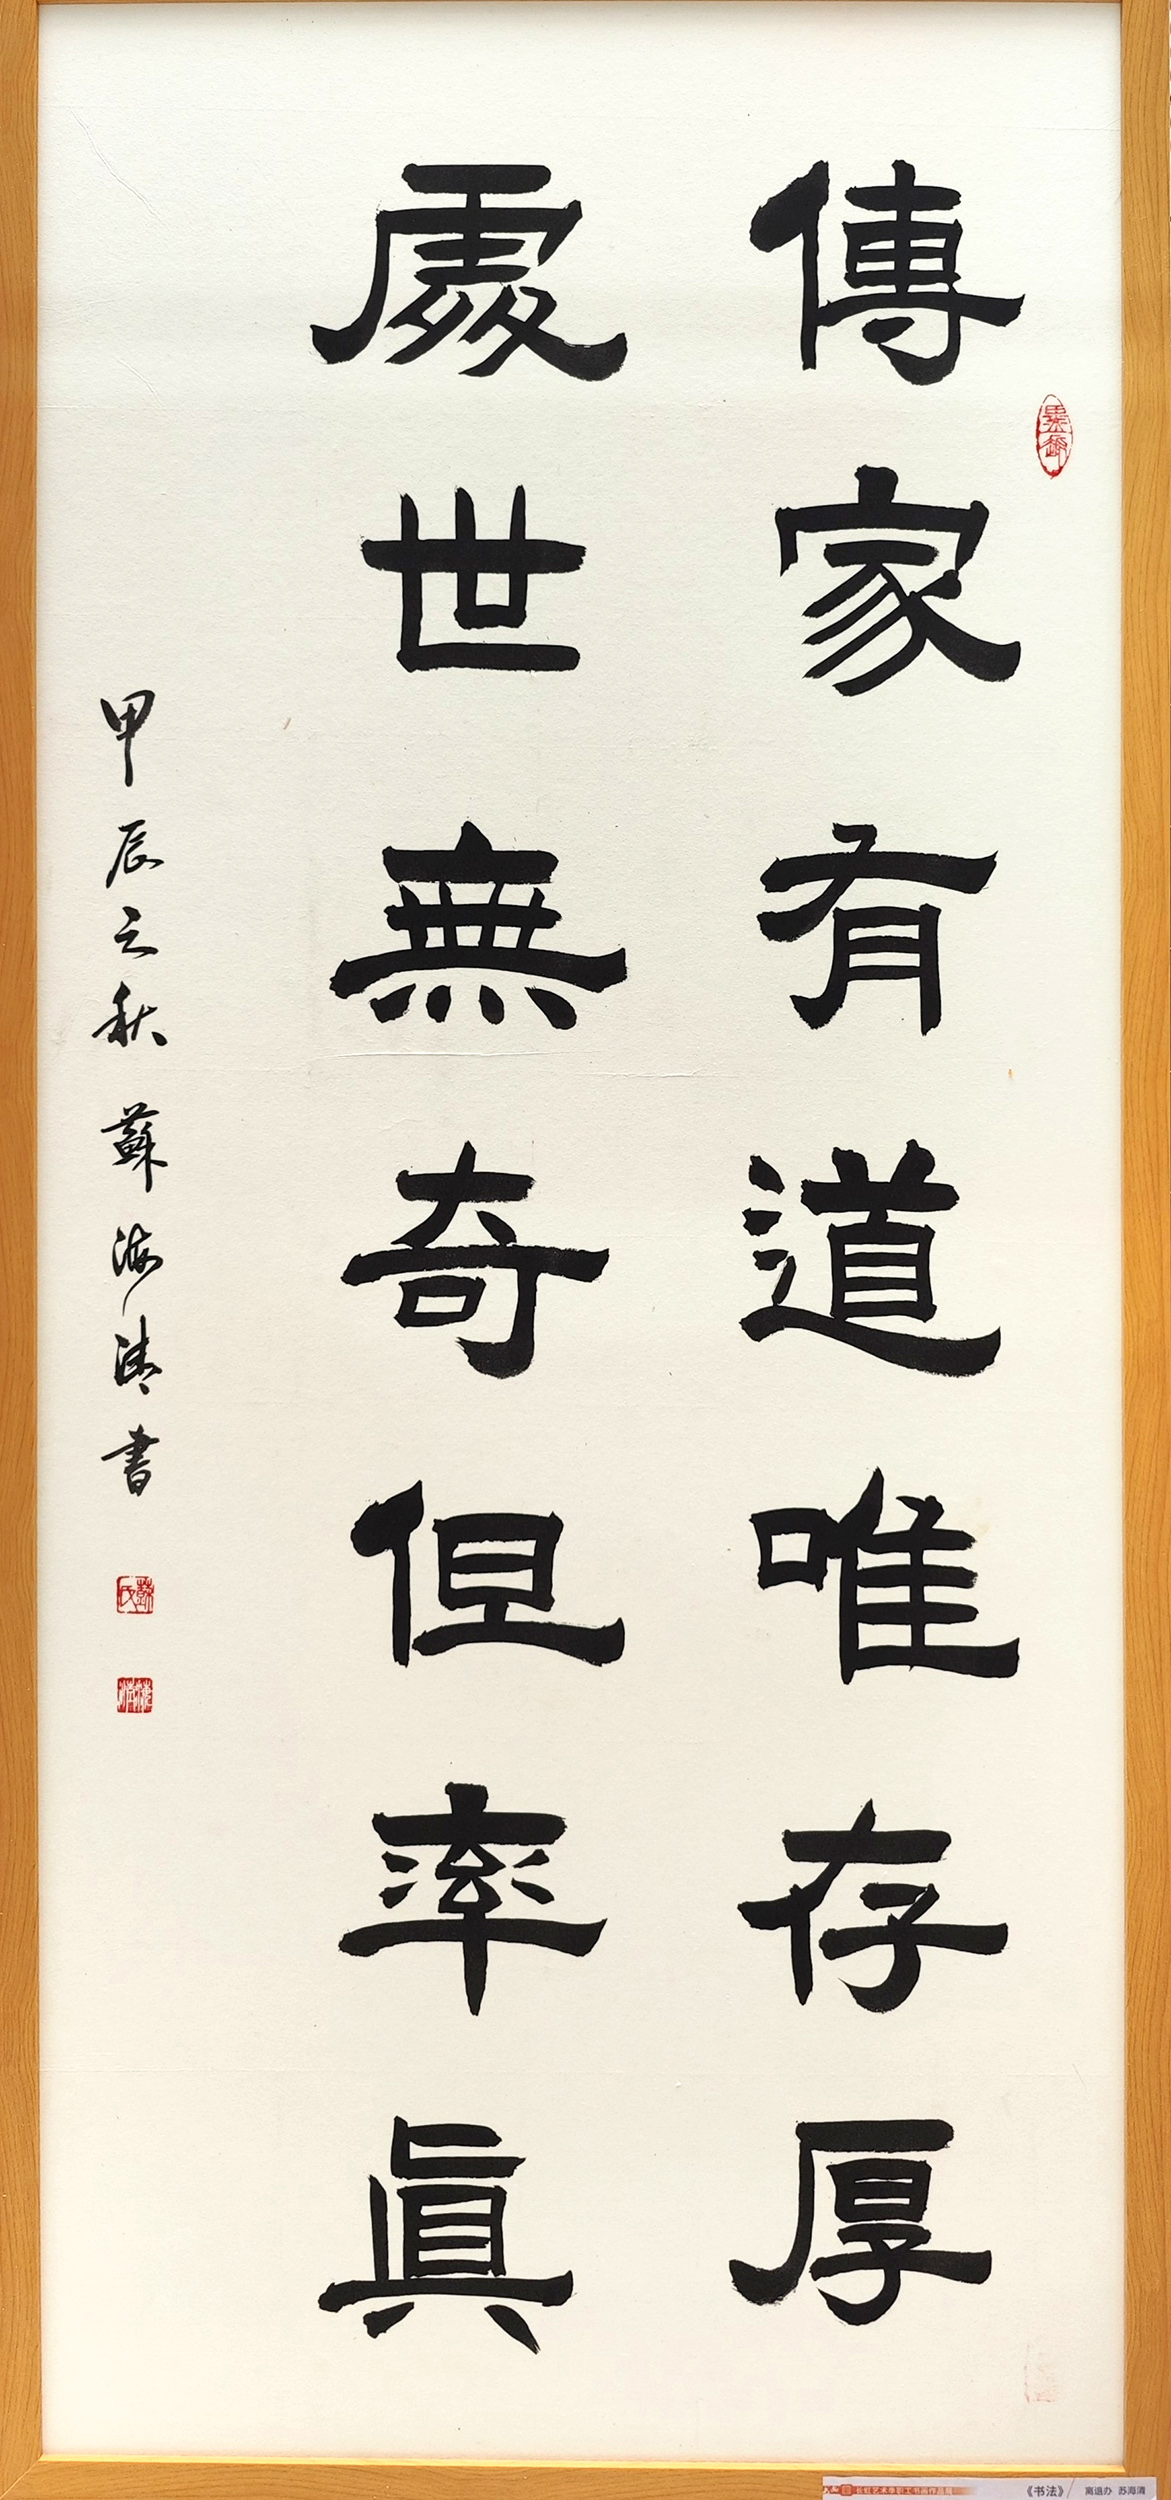 傳家有道唯存厚
處世無奇但率真
甲辰之秋 蘇海清書
蘇氏
《书法》 离退办 苏海清